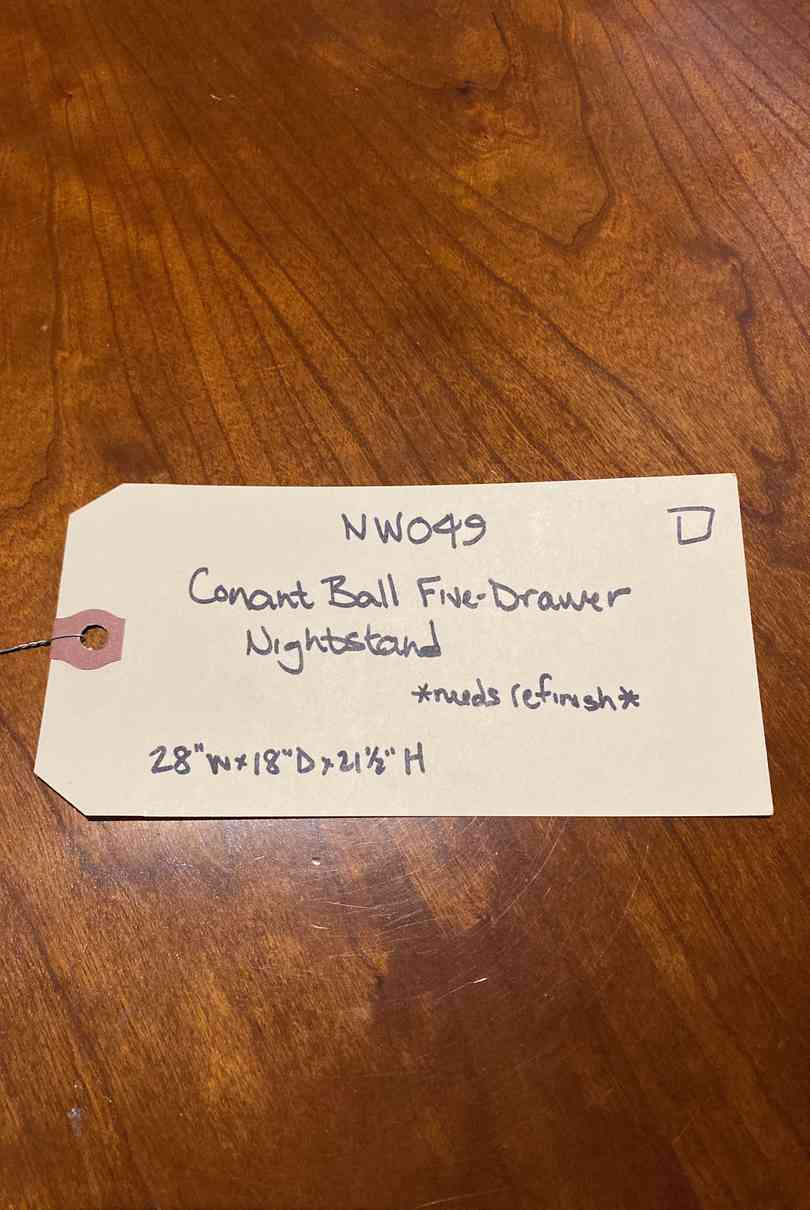 NW049
D
Conant Ball Five-Drawer
Nightstand
*needs refinish*
28"W×18"D×21½"H